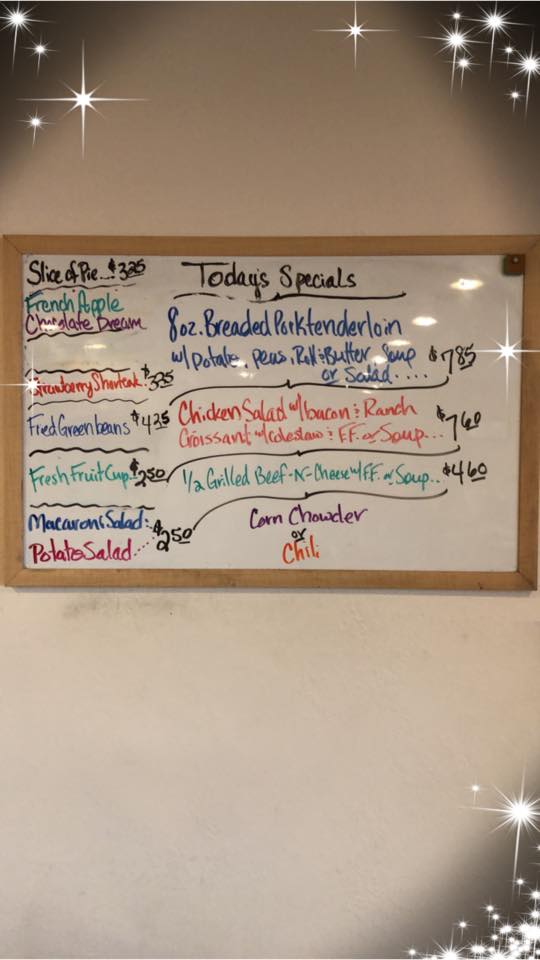 Slice of Pie... $3.25
French Apple
Chocolate Dream
Strawberry Shortcak. $3.35
Fried Greenbeans $4.25
Fresh Fruit Cup. $2.50
Macaroni Salad.:
Potato Salad..... $2.50
Today's Specials
8oz. Breaded Porktenderloin
w/ Potato, peas, Roll & Butter, Soup
or Salad.... $7.85
Chicken Salad w/ bacon & Ranch
Croissant w/ coleslaw & F.F. or Soup... $7.60
1/2 Grilled Beef-N-Cheese w/ F.F. or Soup.. $4.60
Corn Chowder
or
Chili